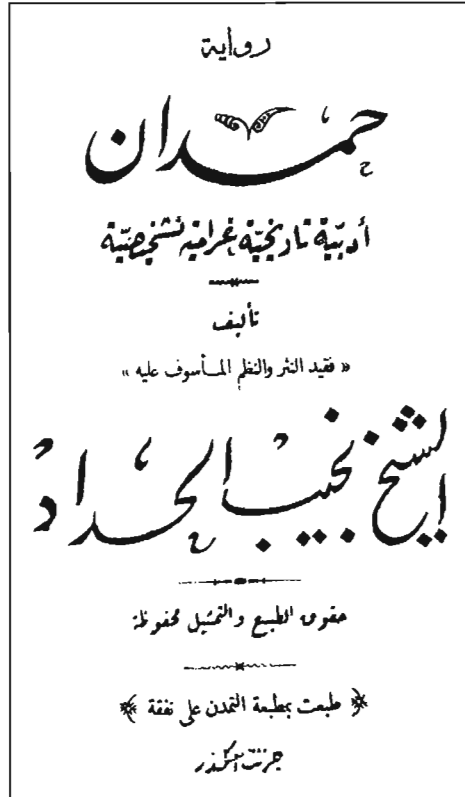 رواية
حمدان
أدبيّة تاريخيّة غرامية تشخيصيّة
تأليف
« فقيد النثر والنظم المأسوف عليه »
الشيخ نجيب الحداد
حقوق الطبع والتمثيل محفوظة
طبعت بمطبعة التمدن على نفقة